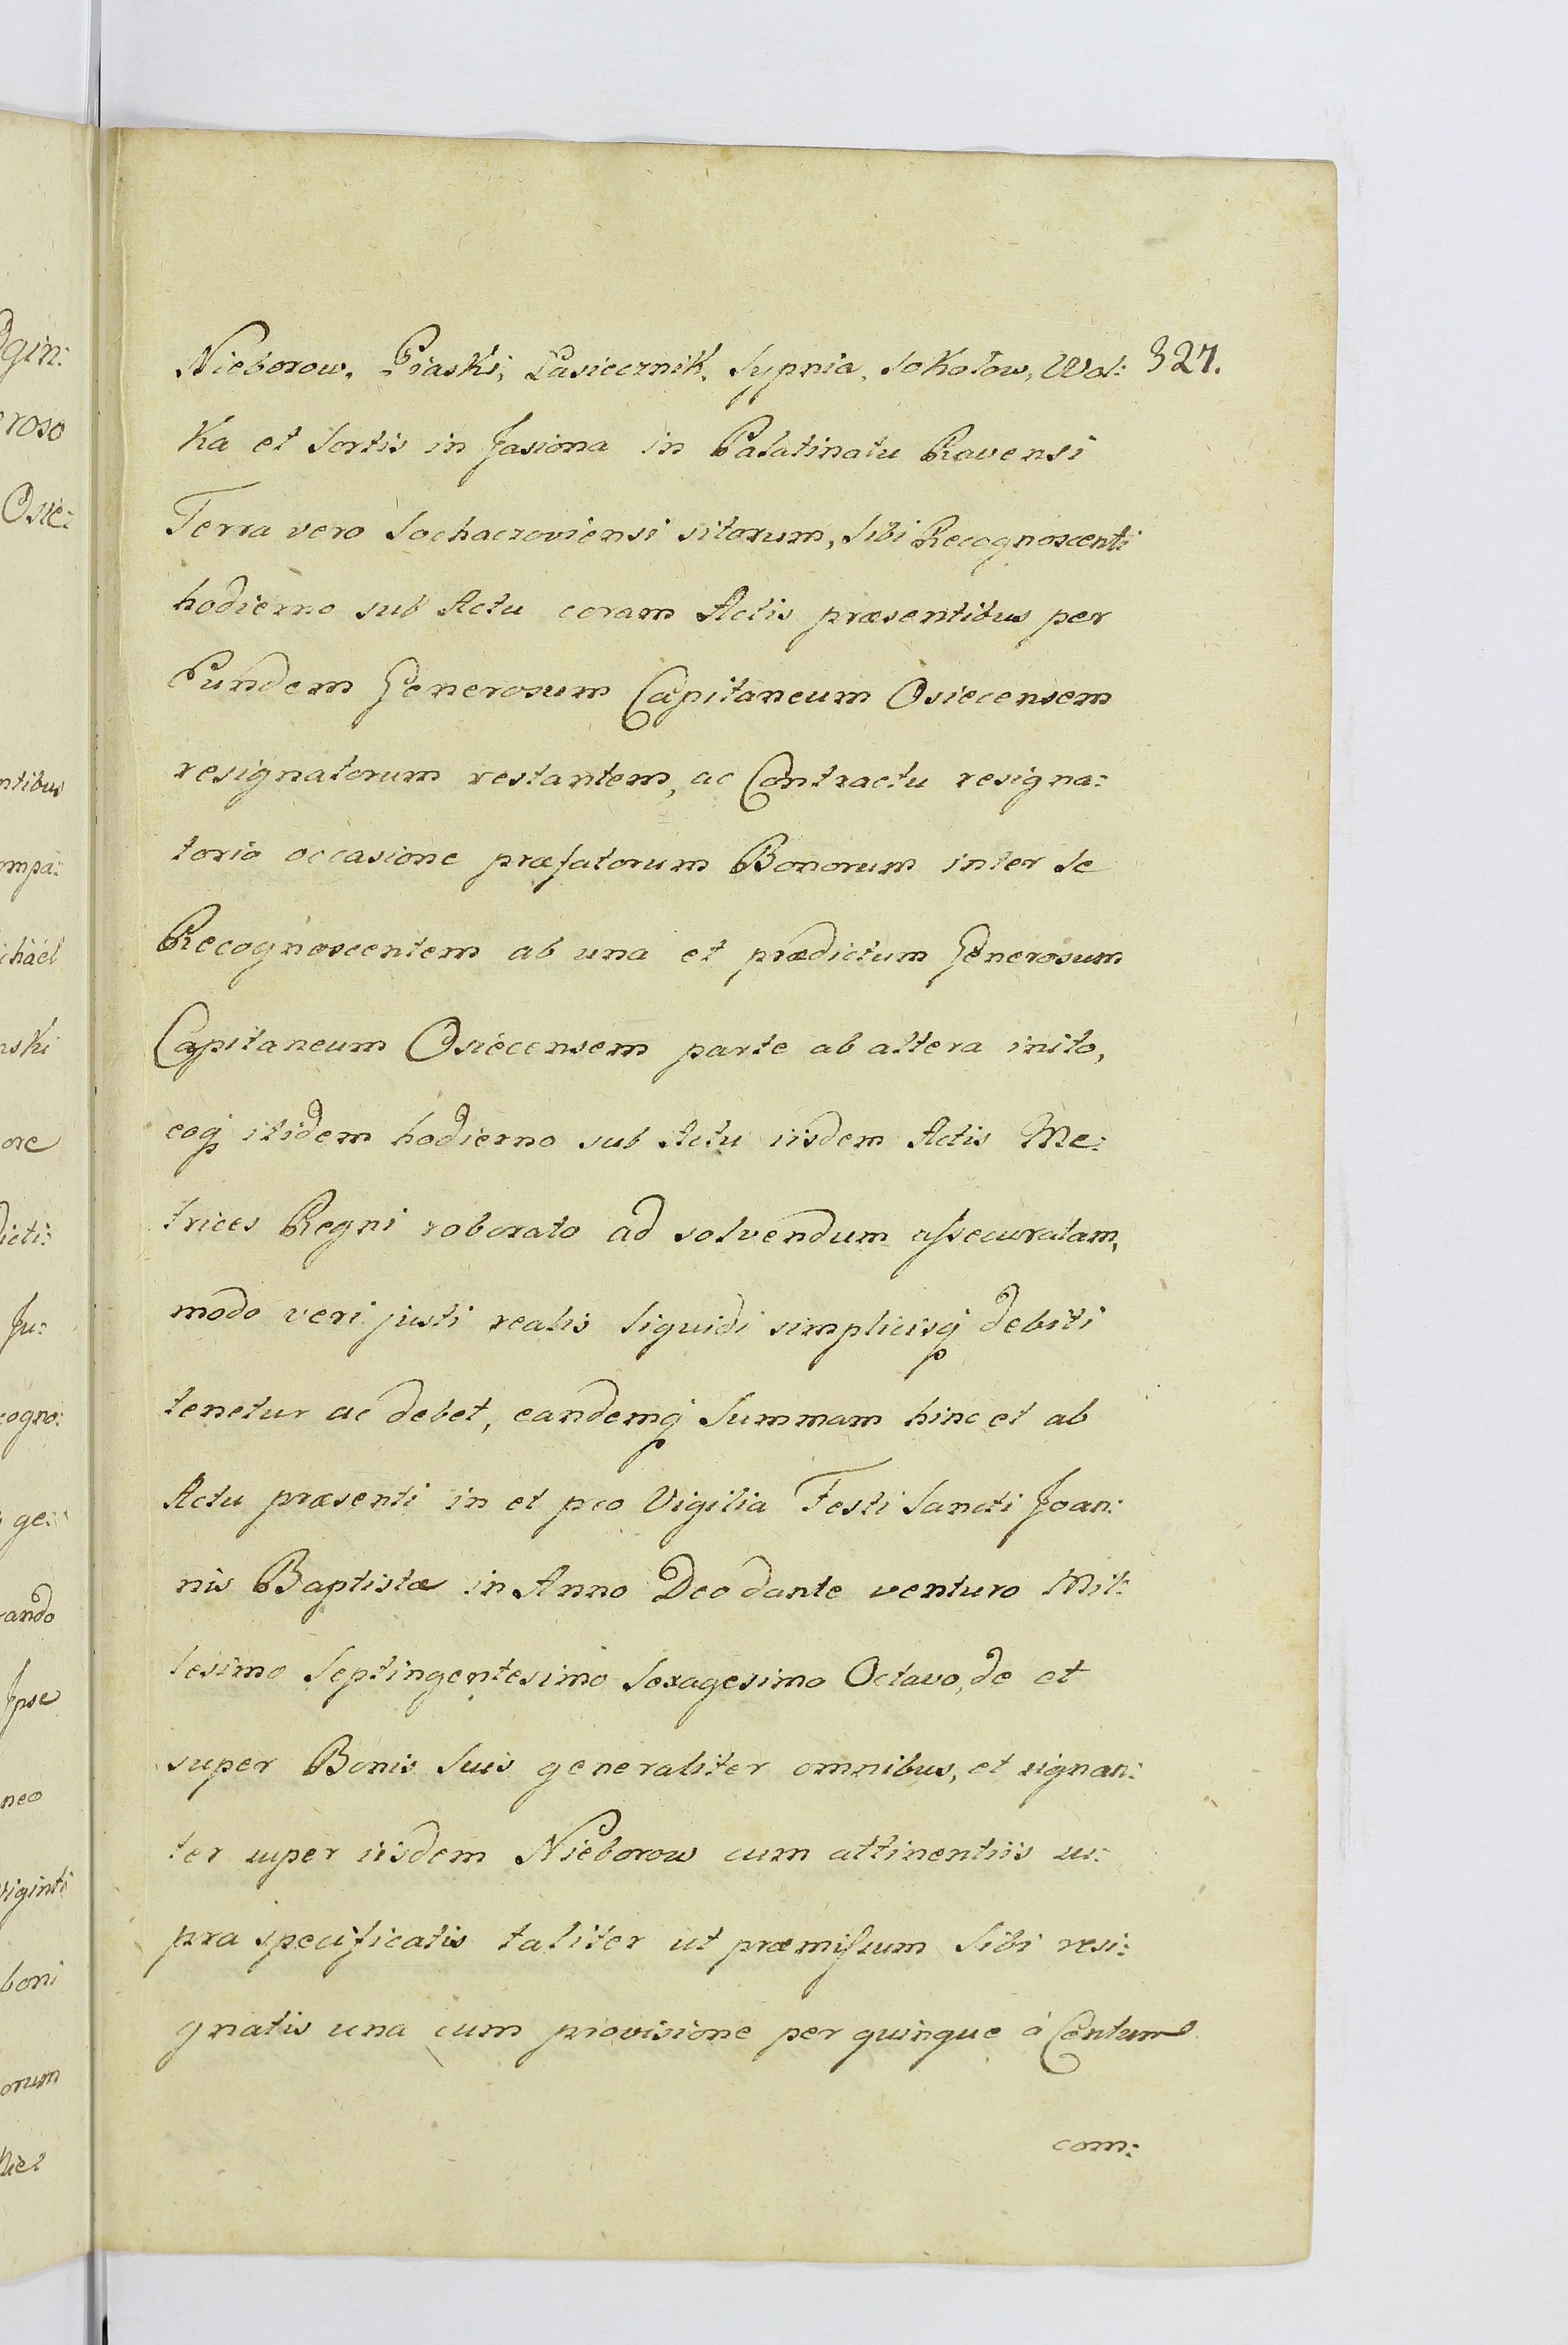 Nieborow, Piaski, Pasiecznik, Sypnia, Sokołow, Wol: 327.
ka et Sortis in Jasiona in Palatinatu Ravensi
Terra vero Sochaczoviensi sitorum, Sibi Recognoscenti
hodierno sub Actu coram Actis præsentibus per
Eundem Generosum Capitaneum Osiecensem
resignatorum restantem, ac Contractu resigna:
torio occasione præfatorum Bonorum inter Se
Recognoscentem ab una et prædictum Generosum
Capitaneum Osiecensem parte ab altera inito,
eoq́ itidem hodierno sub Actu iisdem Actis Me:
trices Regni roborato ad solvendum assecuratam,
modo veri justi realis liquidi simplicisq́ debiti
tenetur ac debet, eandemq́ Summam hinc et ab
Actu præsenti in et pro Vigilia Festi Sancti Joan:
nis Baptistæ in Anno Deo dante venturo Mil:
lesimo Septingentesimo Sexagesimo Octavo, de et
super Bonis Suis generaliter omnibus, et signan:
ter super iisdem Nieborow cum attinentiis su:
pra specificatis taliter ut præmissum Sibi resi:
gnatis una cum provisione per quinque à Centum
com:
gin:
roso
Osie:
ntibus
ompa:
ichaël
nski
ore
dicti:
Ju:
cogno:
ge:
ando
Ipse
neo
Viginti
boni
orum